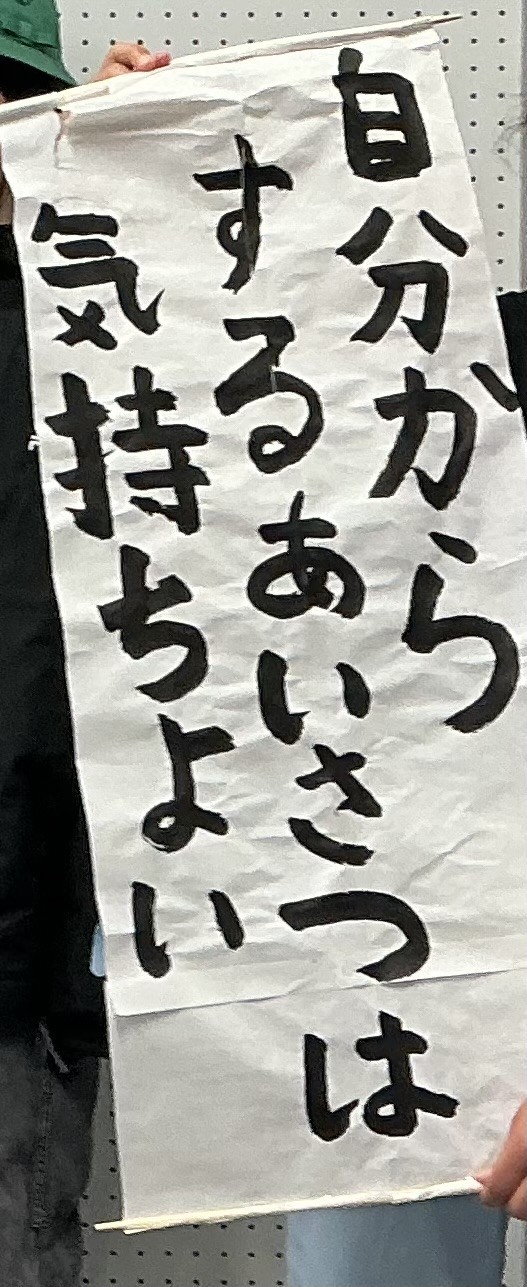 自分から
するあいさつは
気持ちよい